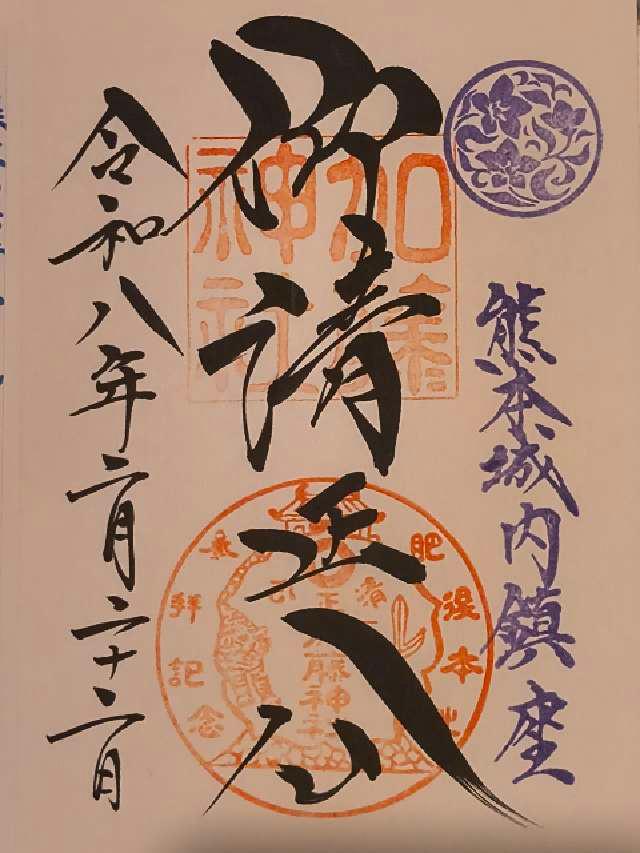 熊本城内鎮座
仰清正公
加藤神社
肥後本妙
参拝記念
加藤神社
令和八年二月二十二日